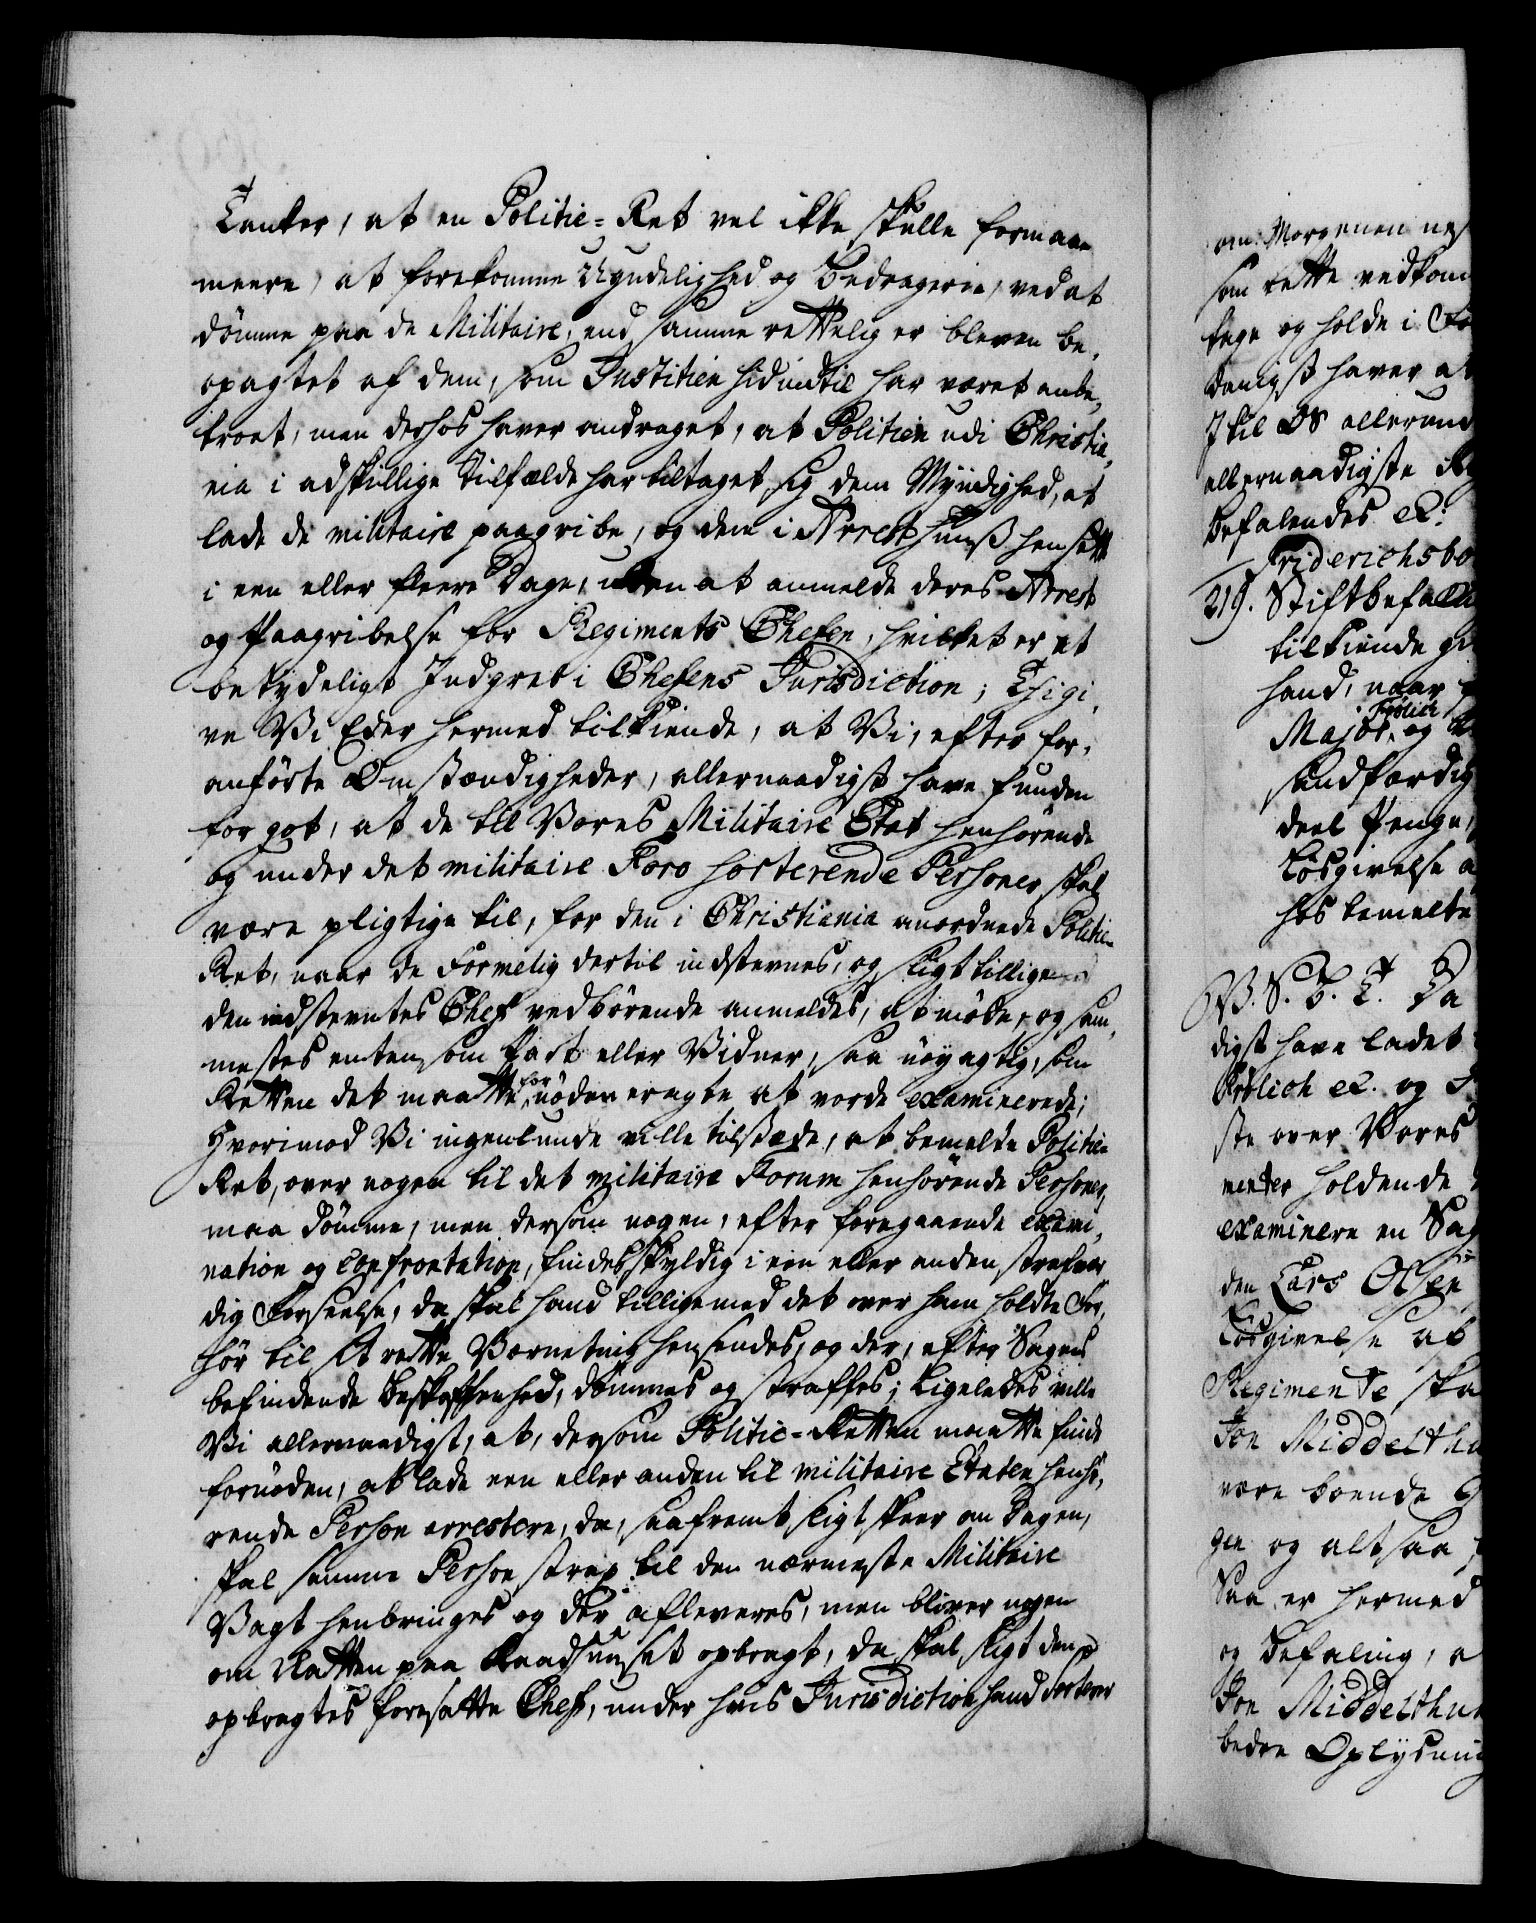 Tanker, at en Politie=Ret vel ikke skulle formaae
meere, at forekomme Uÿndelighed og Bedragerie, ved at
dömme paa de Militaire, end samme rettelig er bleven be,
opagtet af dem, som Justitien hidindtil har været anbe,
troet, men derhos haver andraget, at Politien udi Christia,
nia i adskillige Tilfælde har tiltaget sig dem Mÿndighed, at
lade de militaire paagribe, og dem i Arrest Huuß hensætte
i een eller fleere Dage, uden at anmelde deres Arrest
og Paagribelse for Regiments Chefen, hvilket er et
betydeligt Indgreb i Chefens Jurisdiction; Thi gi,
ve Vi Eder hermed tilkiende, at Vi, efter for,
anförte Omstændigheder, allernaadigst have funden
for got, at de til Vores Militaire Etat henhörende
og under det militaire Foro sorterende Personer, skal
være pligtige til, for den i Christiania anordnede Politie
Ret, naar de Formelig dertil indstevnes, og sligt tillige
den indstevntes Chef vedbörende anmeldes, at möde, og sam,
mestes enten som Part eller Vidner, saa nöyagtig, som
Retten det maatte for nöden eragte at vorde examinerede;
Hvorimod Vi ingenlunde ville tilstæde, at bemelte Politie
Ret, over nogen til det militaire Forum henhörende Personer,
maa dömme, men dersom nogen, efter foregaaende exami,
nation og Confrontation, findes skyldig i een eller anden strafvær
dig Forseelse, da skal hand tilligemed det over ham holdte For,
hör til sit rette Værneting hensendes, og der, efter Sagens
befindende Beskaffenhed, dömmes og straffes; Ligeledes ville
Vi allernaadigst, at, dersom Politie-Retten maatte finde
fornöden, at lade een eller anden til militaire Etaten henhö,
rende Person arrestere, da, saafremt sligt skeer om Dagen,
skal samme Person strax til den nærmeste Militaire
Vagt henbringes og der afleveres, men bliver nogen
om Natten paa Raadhuuset opbragt, da skal sligt den
opbragtes foresatte Chef, under hvis Jurisdiction hand sorterer
om Morgenen nes
som rette vedkom
tage og holde i For
danigst haver at
I til OS allerund
allernaadigste
Befalendes etc:
Friderichsbo
219. Stiftbefal
tilkiende gi
hand, naar
Major Frölich, og
sandfærdig
deel Penge,
Lösgivelse a
hos bemelte
V. S. B. T. Da
digst have ladet
Frölich etc. og
ste over Vores
menter holdende
examinere en Sag
den Lars Olsen
Lösgivelse af
Regimente, ska
Jon Middelthu
være boende
gen og alt saa
Saa er hermed
og Befaling, a
Jon Middelthun
bedre Oplÿsning